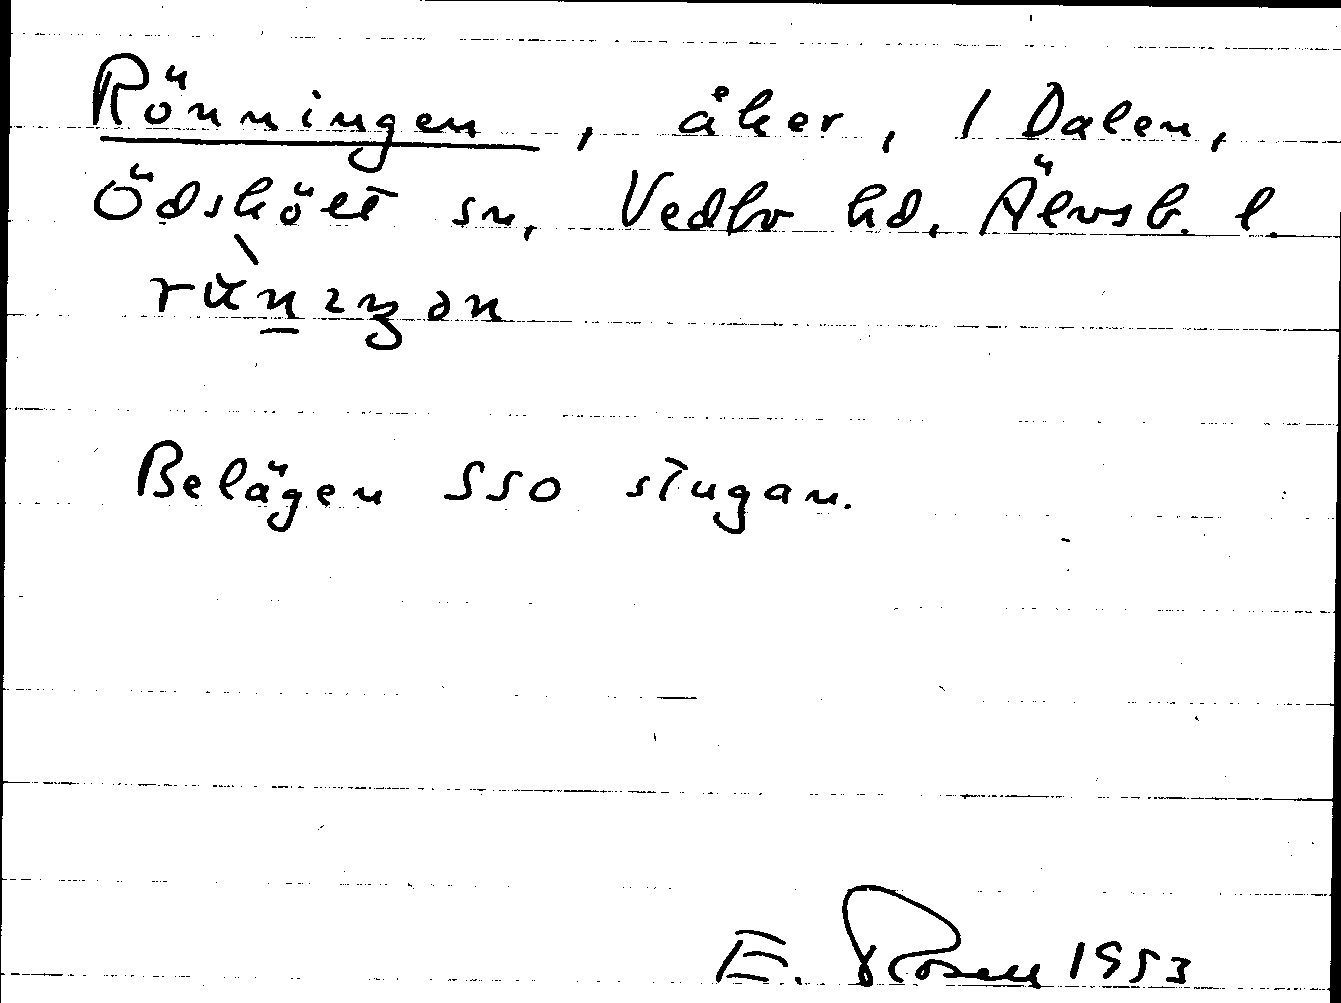 Rönningen, åker, 1 Dalen,
Ödskölt sn, Vedbo hd, Älvsb. l.
Belägen SSO stugan.
E. Rosell 1953